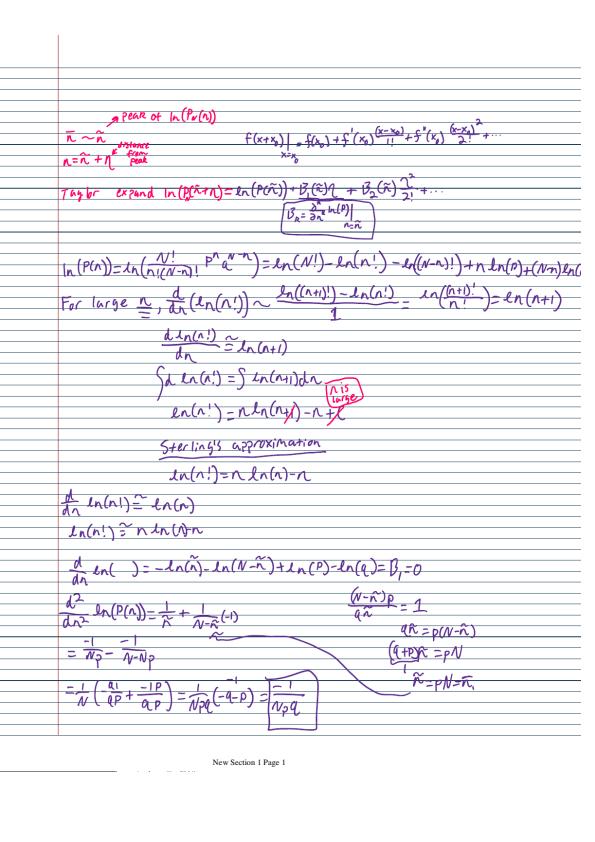 peak of ln(P_N(n))
n̄ ~ ñ
n = ñ + η distance from peak
f(x+x₀)|_{x=x₀} = f(x₀) + f'(x₀) (x-x₀)/1! + f''(x₀) (x-x₀)²/2! + ...
Taylor expand ln(P(ñ+η) = ln(P(ñ)) + B₁(ñ)η + B₂(ñ) η²/2! + ...
B_k = ∂^k/∂n^k ln(P)|_{n=ñ}
ln(P(n)) = ln(N!/(n!(N-n)!) pⁿ q^{N-n}) = ln(N!) - ln(n!) - ln((N-n)!) + n ln(p) + (N-n) ln(
For large n, d/dn (ln(n!)) ~ (ln((n+1)!) - ln(n!))/1 = ln((n+1)!/n!) = ln(n+1)
d ln(n!)/dn ≅ ln(n+1)
∫d ln(n!) = ∫ ln(n+1)dn
n is large
ln(n!) = n ln(n+1) - n + 1
Sterling's approximation
ln(n!) = n ln(n) - n
d/dn ln(n!) ≅ ln(n)
ln(n!) ≅ n ln(n)-n
d/dn ln( ) = -ln(ñ) - ln(N-ñ) + ln(p) - ln(q) = B₁ = 0
d²/dn² ln(P(n)) = 1/ñ + 1/(N-ñ) (-1)
(N-ñ)p/qñ = 1
qñ = p(N-ñ)
= -1/Np - -1/(N-Np)
(q+p)ñ = pN
1
ñ = pN = n̄
= 1/N (-q1/qp + -1p/qp) = 1/Npq (-q-p) = -1/Npq
-1
New Section 1 Page 1